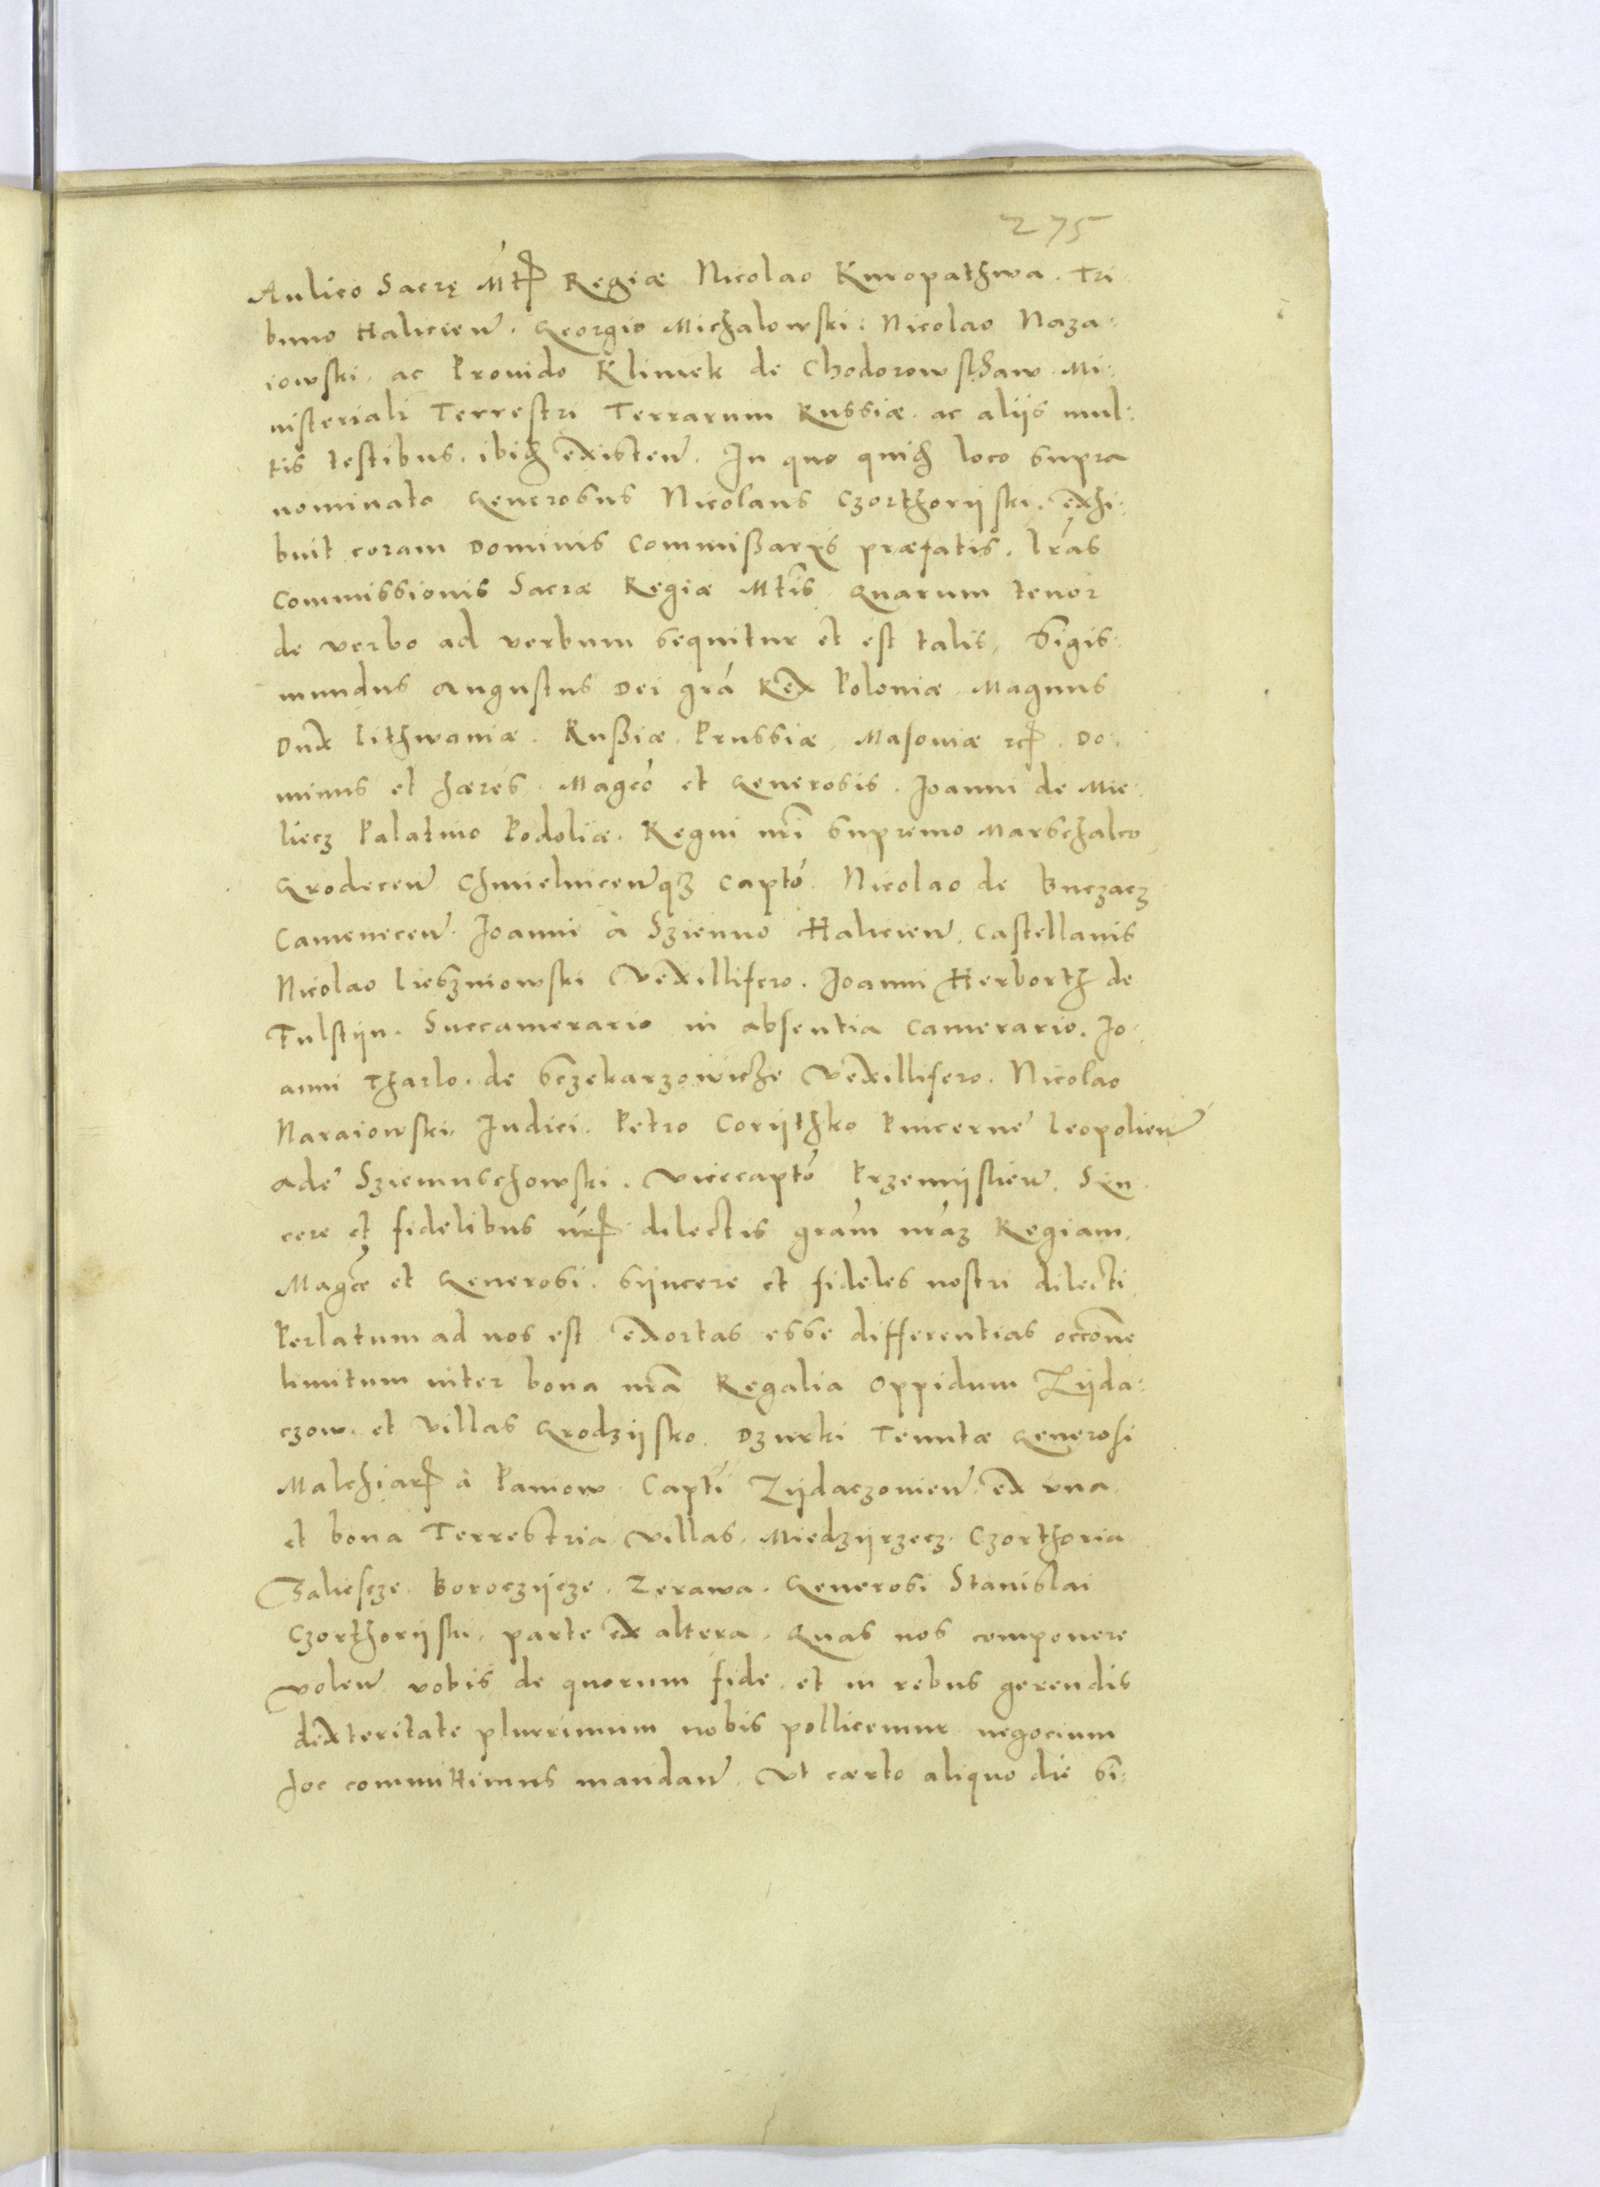 275
Aulico Sacrę Mtis Regiæ Nicolao Kuropathwa. Tri
buno Halicien. Georgio Michalowski. Nicolao Naza:
iowski. ac Prouido Klimek de Chodorowsthaw. Mi:
nisteriali Terrestri Terrarum Russiæ. ac aliis mul:
tis testibus. ibid existen. In quo quid loco supra
nominato Generosus Nicolaus Czorthoryski. exhi:
buit coram Dominis Commißarys præfatis. lras
Commissionis Sacræ Regiæ Mtis. Quarum tenor
de verbo ad verbum sequitur et est talis. Sigis:
mundus Augustus Dei gra Rex Poloniæ. Magnus
Dux Lithwaniæ. Rußiæ. Prussiæ. Masoviæ etc. Do:
minus et hæres. Magco et Generosis. Joanni de Mie:
liecz Palatino Podoliæ. Regni nri Supremo Marschalco
Grodecen Chmielnicenq3 Capto. Nicolao de Buczacz
Camenecen. Joanni à Szienno Halicien. Castellanis
Nicolao Lieszniowski Vexillifero. Joanni Herborth de
Fulstyn. Succamerario in absentia Camerario. Jo:
anni Tharlo. de Sczekarzowicze Vexillifero. Nicolao
Naraiowski Judici. Petro Corythko Pincerne Leopolien
Ade Sziemuschowski. Vicecapto Przemyslien. Syn
cere et fidelibus nris dilectis gram nram Regiam.
Magce et Generosi. Syncere et fideles nostri dilecti
Perlatum ad nos est exortas esse differentias occone
limitum inter bona nra Regalia Oppidum Zyda:
czow. et Villas Grodzysko. Dzurki Tenutæ Generosi
Malchiaris à Paniow. Capti Zydaczovien. ex una.
et bona Terrestria Villas. Miedzyrzecz. Czorthoria
Zaliescze. Boroczycze. Zerawa. Generosi Stanislai
Czorthoryski. parte ex altera. Quas nos componere
volen vobis de quorum fide. et in rebus gerendis
dexteritate plurimum nobis pollicemur negocium
hoc committimus mandan. Ut cærto aliquo die si: